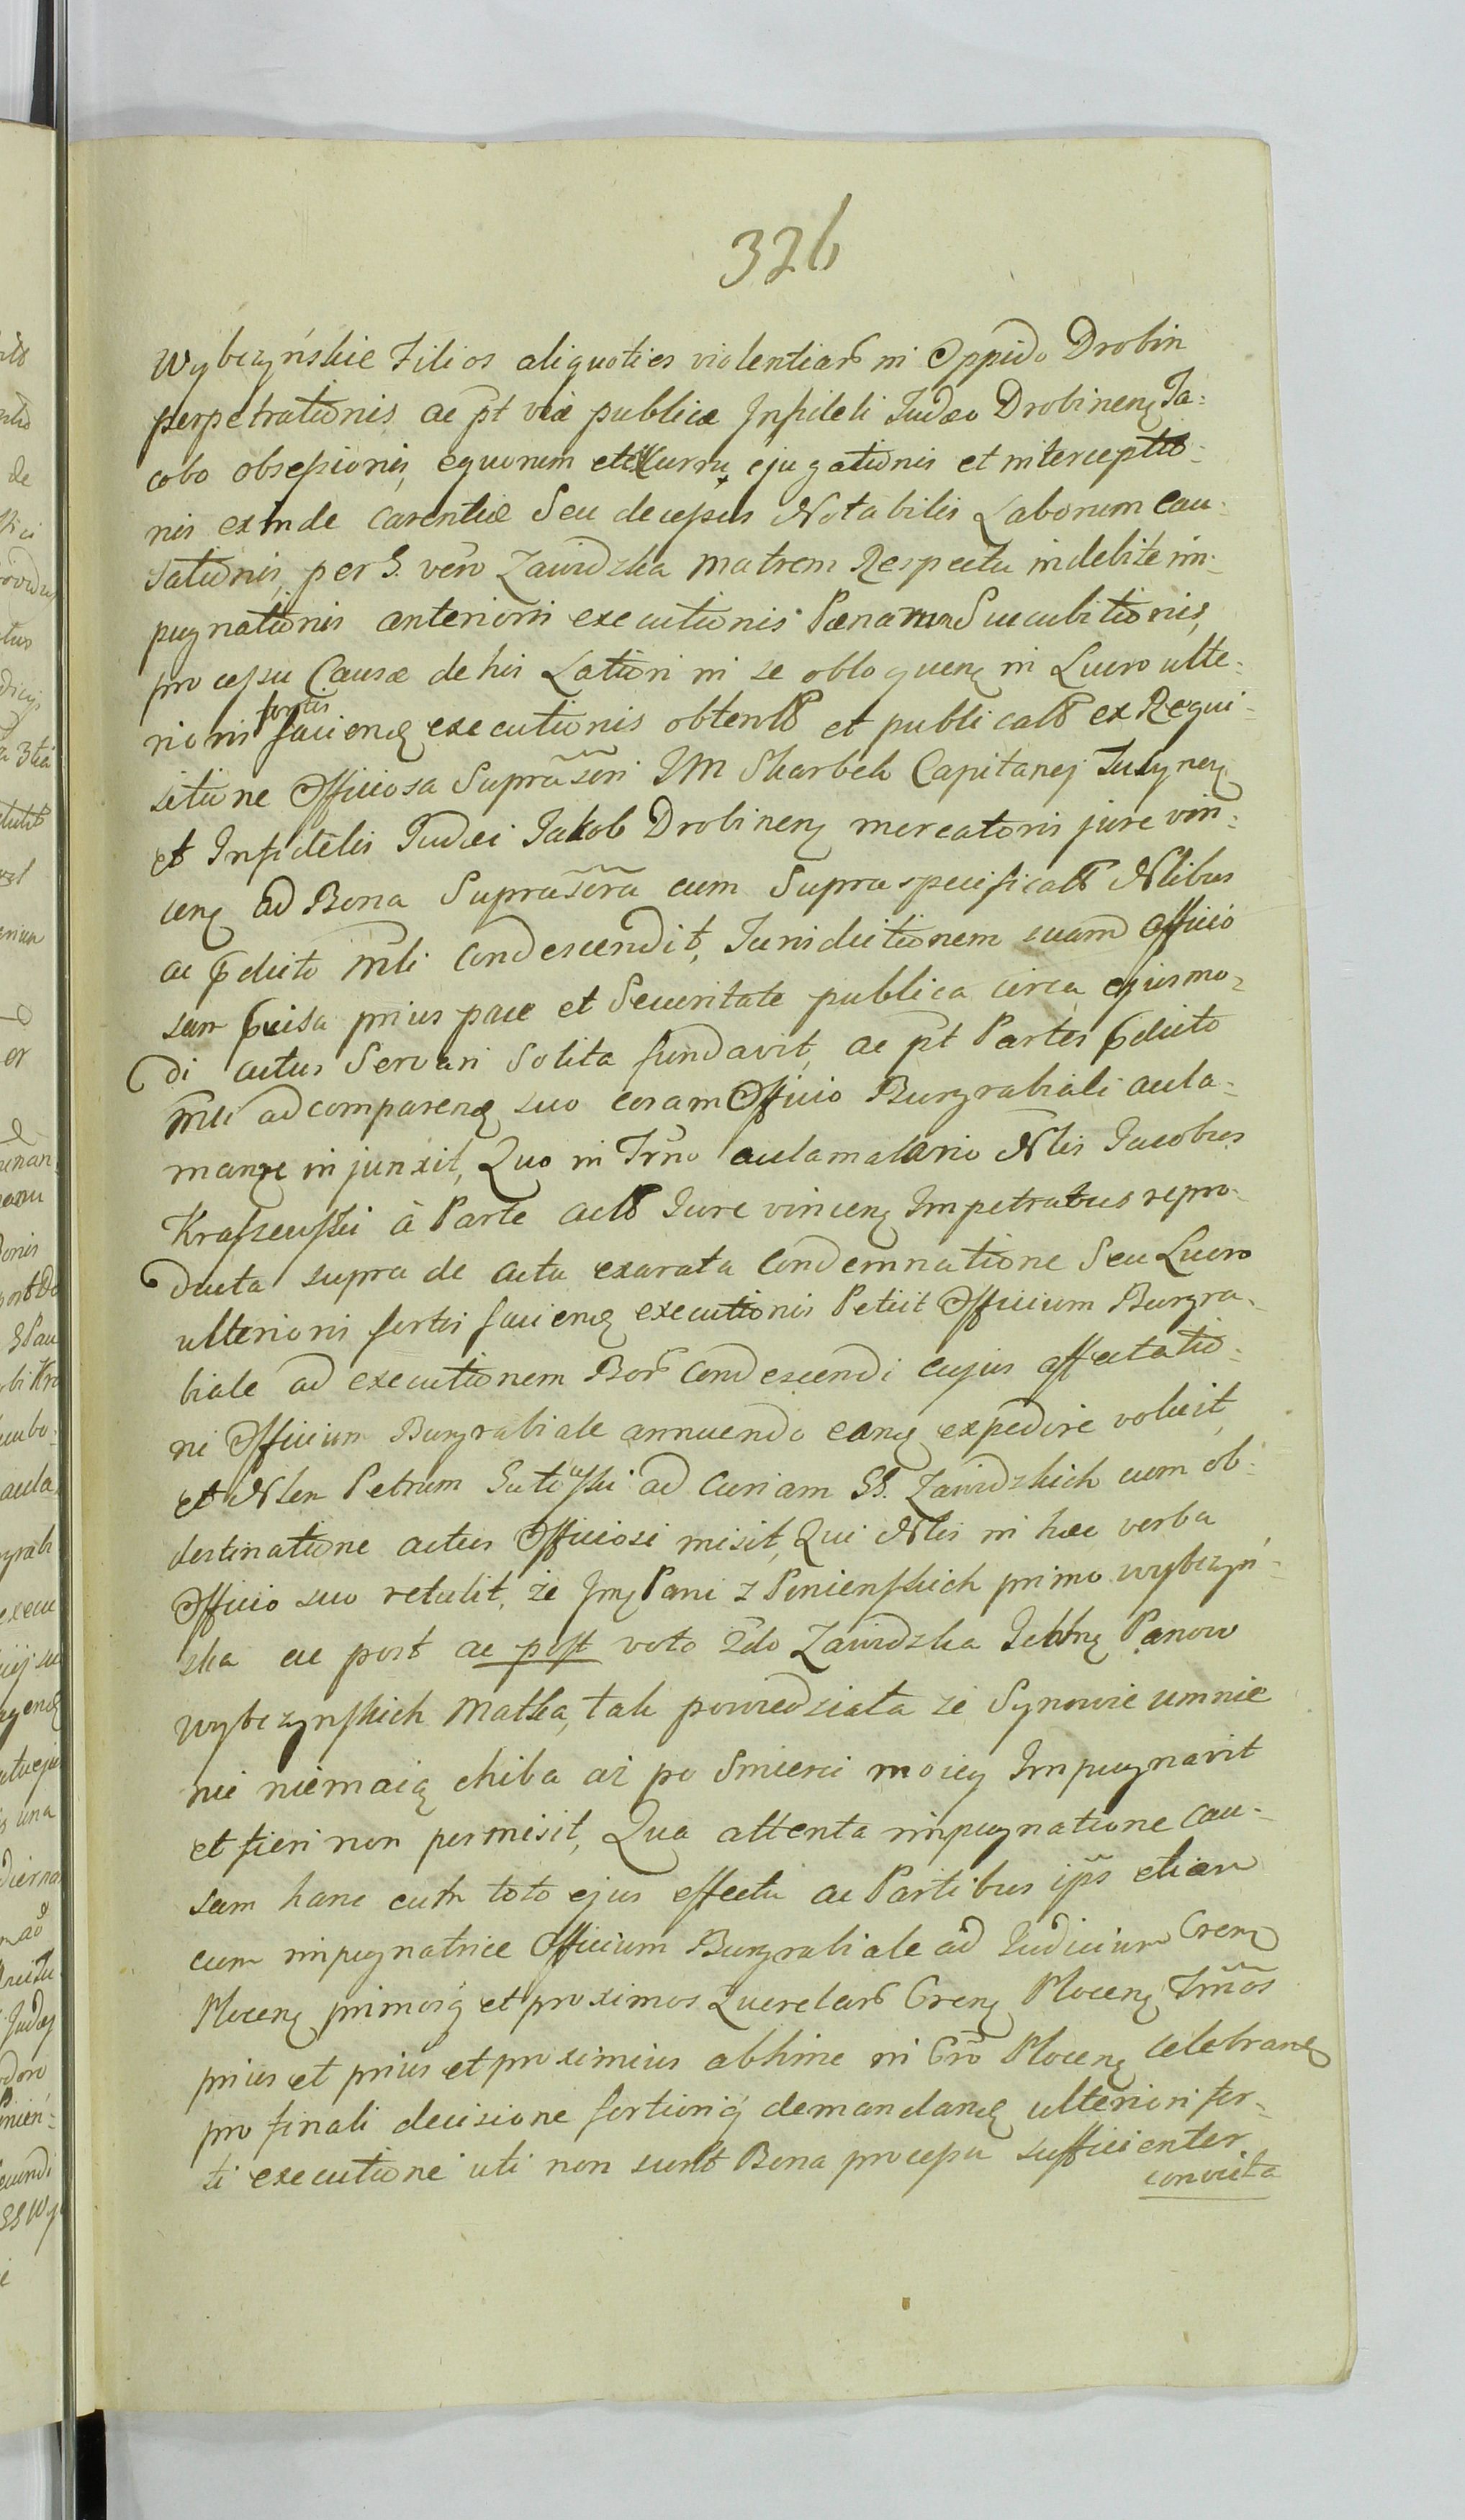 326
Wybczyńskie Filios aliquoties violentiar in Oppido Drobin
perpetrationis ac pt viæ publicæ Infideli Judæo Drobinen Ja-
cobo obsessionis, equorum et Currū ejugationis et interceptio-
nis exinde carentiæ Seu decessus Notabilis Laborum cau-
sationis, per G. vero Zawidzka matrem Respectu indebite im-
pugnationis anterioris executionis Pænarum Succubitionis,
processu Causæ de his Latiori in se obloquen in Lucro ulte-
rioris fortis facien executionis obtent et publicat ex Requi-
sitione Officiosa Suprascri JM Skarbek Capitanei Tulynen
et Infidelis Judæi Jakob Drobinen mercatoris jure vin-
cen ad Bona Suprascra cum Supraspecificat Nlibus
ac pdicto Mli condescendit, Jurisdictionem suam officio
sam pvisa prius pace et Securitate publica circa ejusmo-
di actus Servari Solita fundavit, ac pt Partes pdicto
Mli ad comparen suo coram Officio Burgrabiali acla-
mare injunxit, Quo in Trno aclamatorio Nlis Jacobus
Krassewski à Parte act Jure vincen Impetratus repro-
ducta supra de actu exarata Condemnatione Seu Lucro
ulterioris fortis facien executionis Petiit Officium Burgra-
biale ad executionem Bor Condescendi cujus affectatio-
ni Officium Burgrabiale annuendo eam expedire voluit,
et Nlem Petrum Gutowski ad Curiam GG. Zawidzkich cum ob-
destinatione actus Officiosi misit, Qui Nlis in hæc verba
Officio suo retulit, że Jmę Pani z Ponienskich primo wybczyń-
ska ac post ac post voto 2do Zawidzka Ichmę Panow
wybczynskich Matka, tak powiedziała ze Synowie u mnie
nic niemaią chiba aż po Smierci moiey Impugnavit
et fieri non permisit, Qua attenta impugnatione cau-
sam hanc cum toto ejus effectu ac Partibus ips etiam
cum impugnatrice Officium Burgrabiale ad Judicium Cren
Plocen primos et proximos Querelar Cren Plocen Trnos
prius et prius et proximius abhinc in Cro Plocen celebran
pro finali decisione fortiori demandan ulteriori for-
ti executione uti non sunt Bona processu sufficienter
convicta